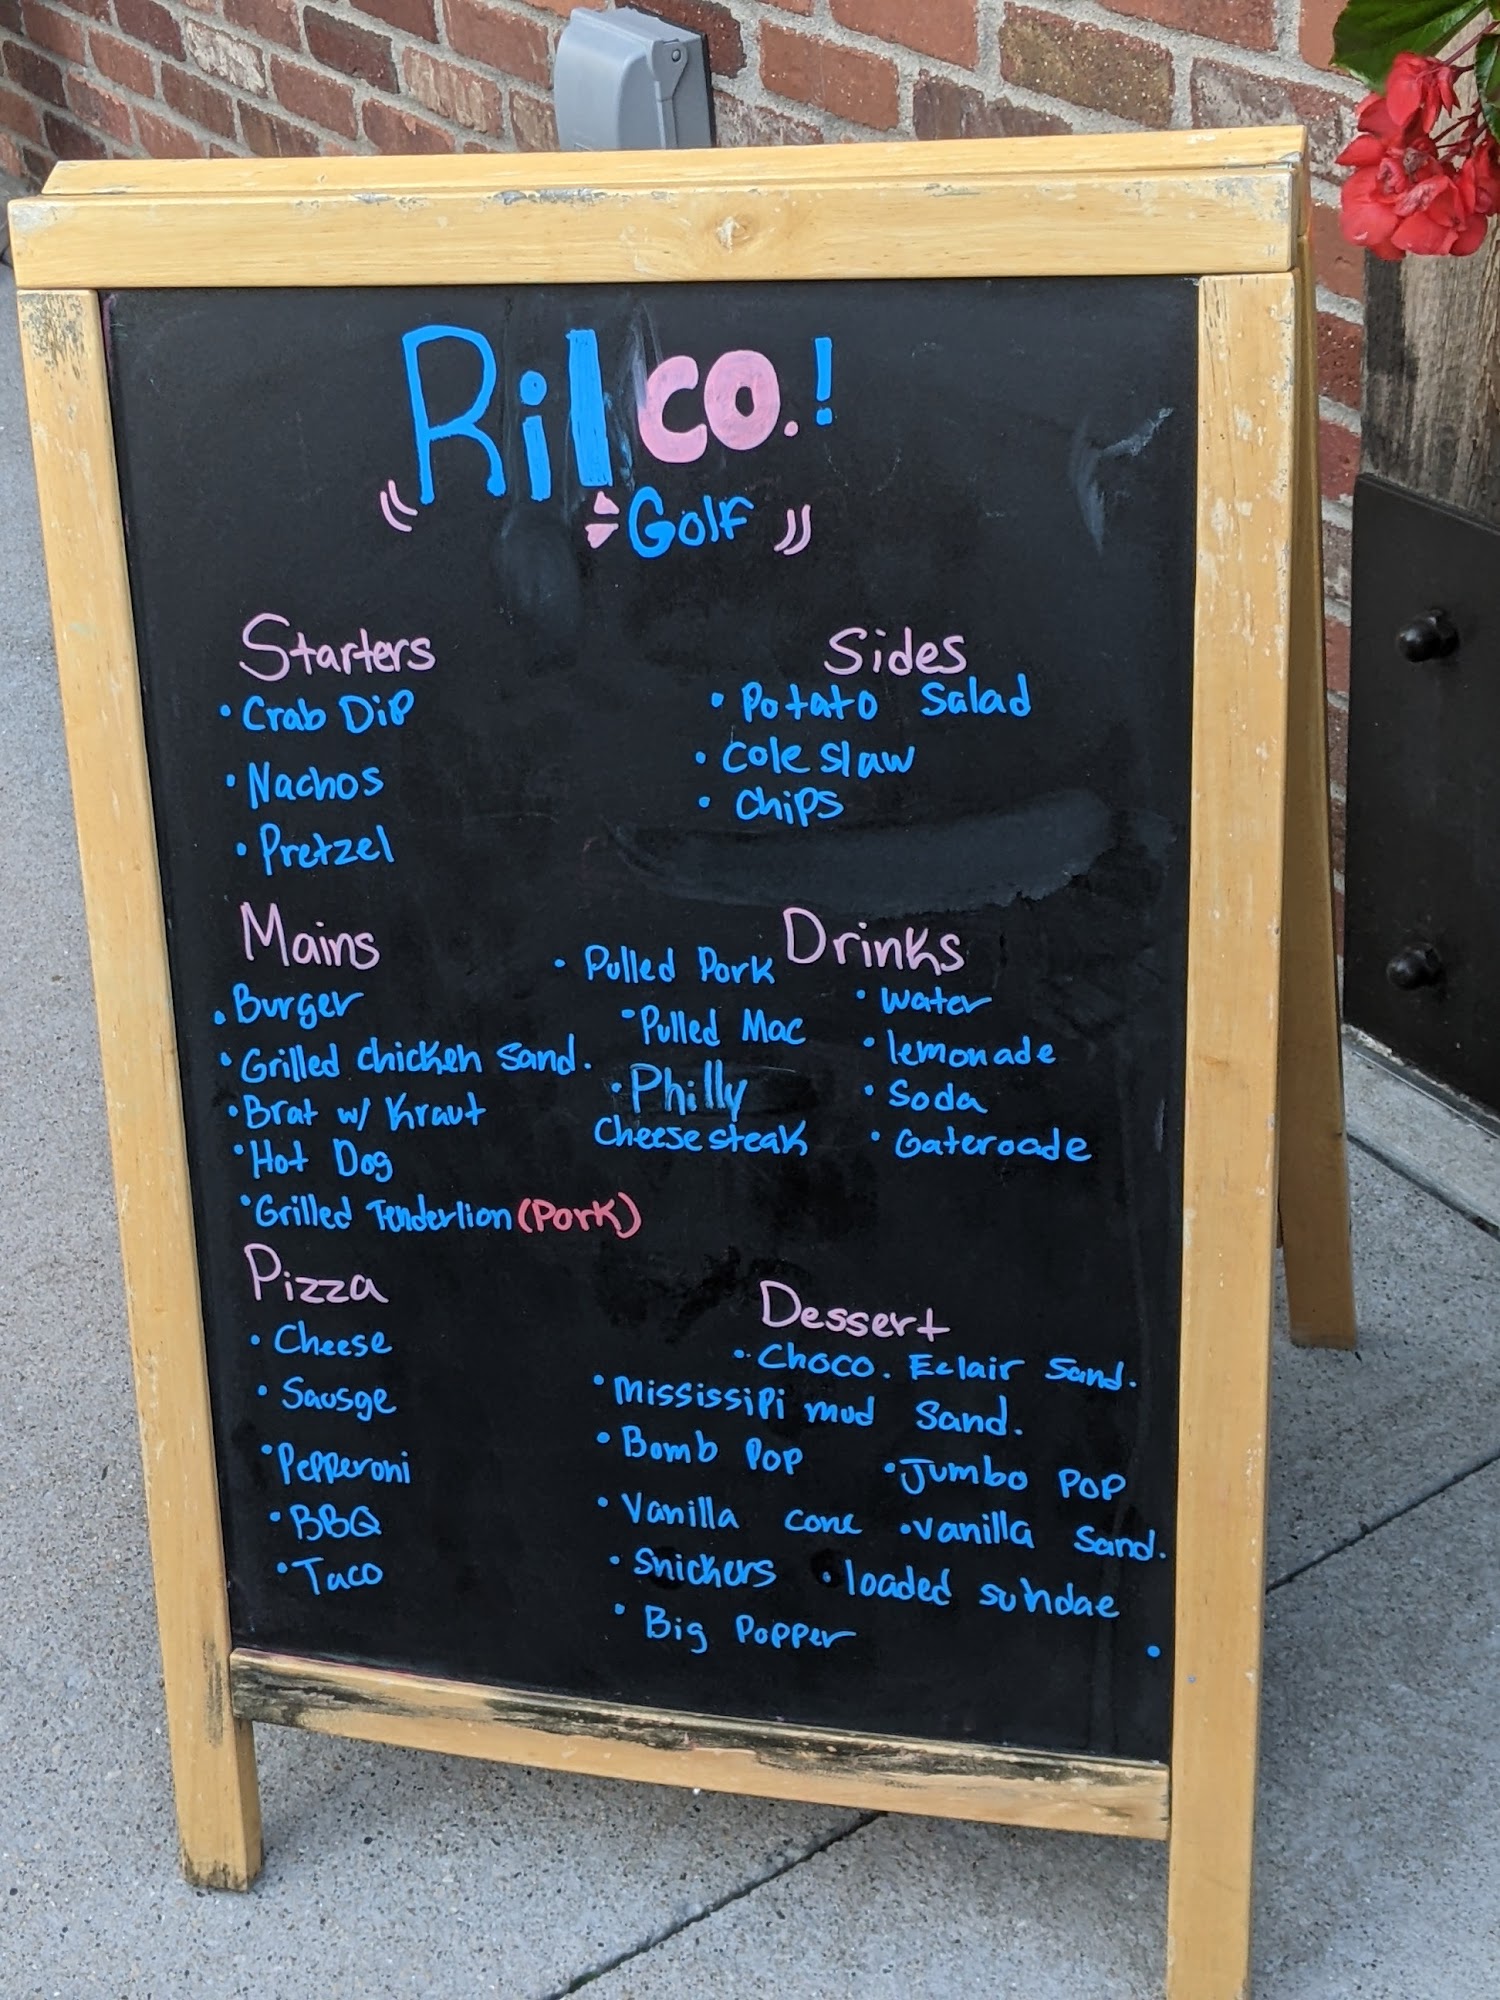 Rilco.!
Golf
Starters
• Crab Dip
• Nachos
• Pretzel
Sides
• Potato Salad
• Cole slaw
• Chips
Mains
• Burger
• Grilled chicken Sand.
• Brat w/ Kraut
• Hot Dog
• Grilled Tenderlion (Pork)
• Pulled Pork
• Pulled Mac
• Philly
Cheese steak
Drinks
• water
• lemonade
• Soda
• Gateroade
Pizza
• Cheese
• Sausge
• Pepperoni
• BBQ
• Taco
Dessert
• Choco. Eclair Sand.
• Mississipi mud Sand.
• Bomb Pop • Jumbo Pop
• Vanilla cone • vanilla Sand.
• Snickers • loaded sundae
• Big Popper